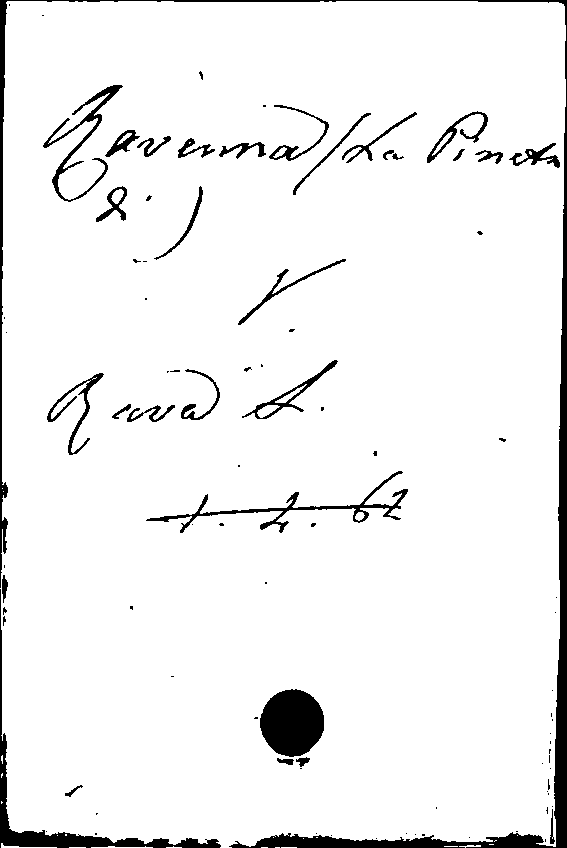 Ravenna (La Pineta
di)
V.
Rava L.
1. 4. 62